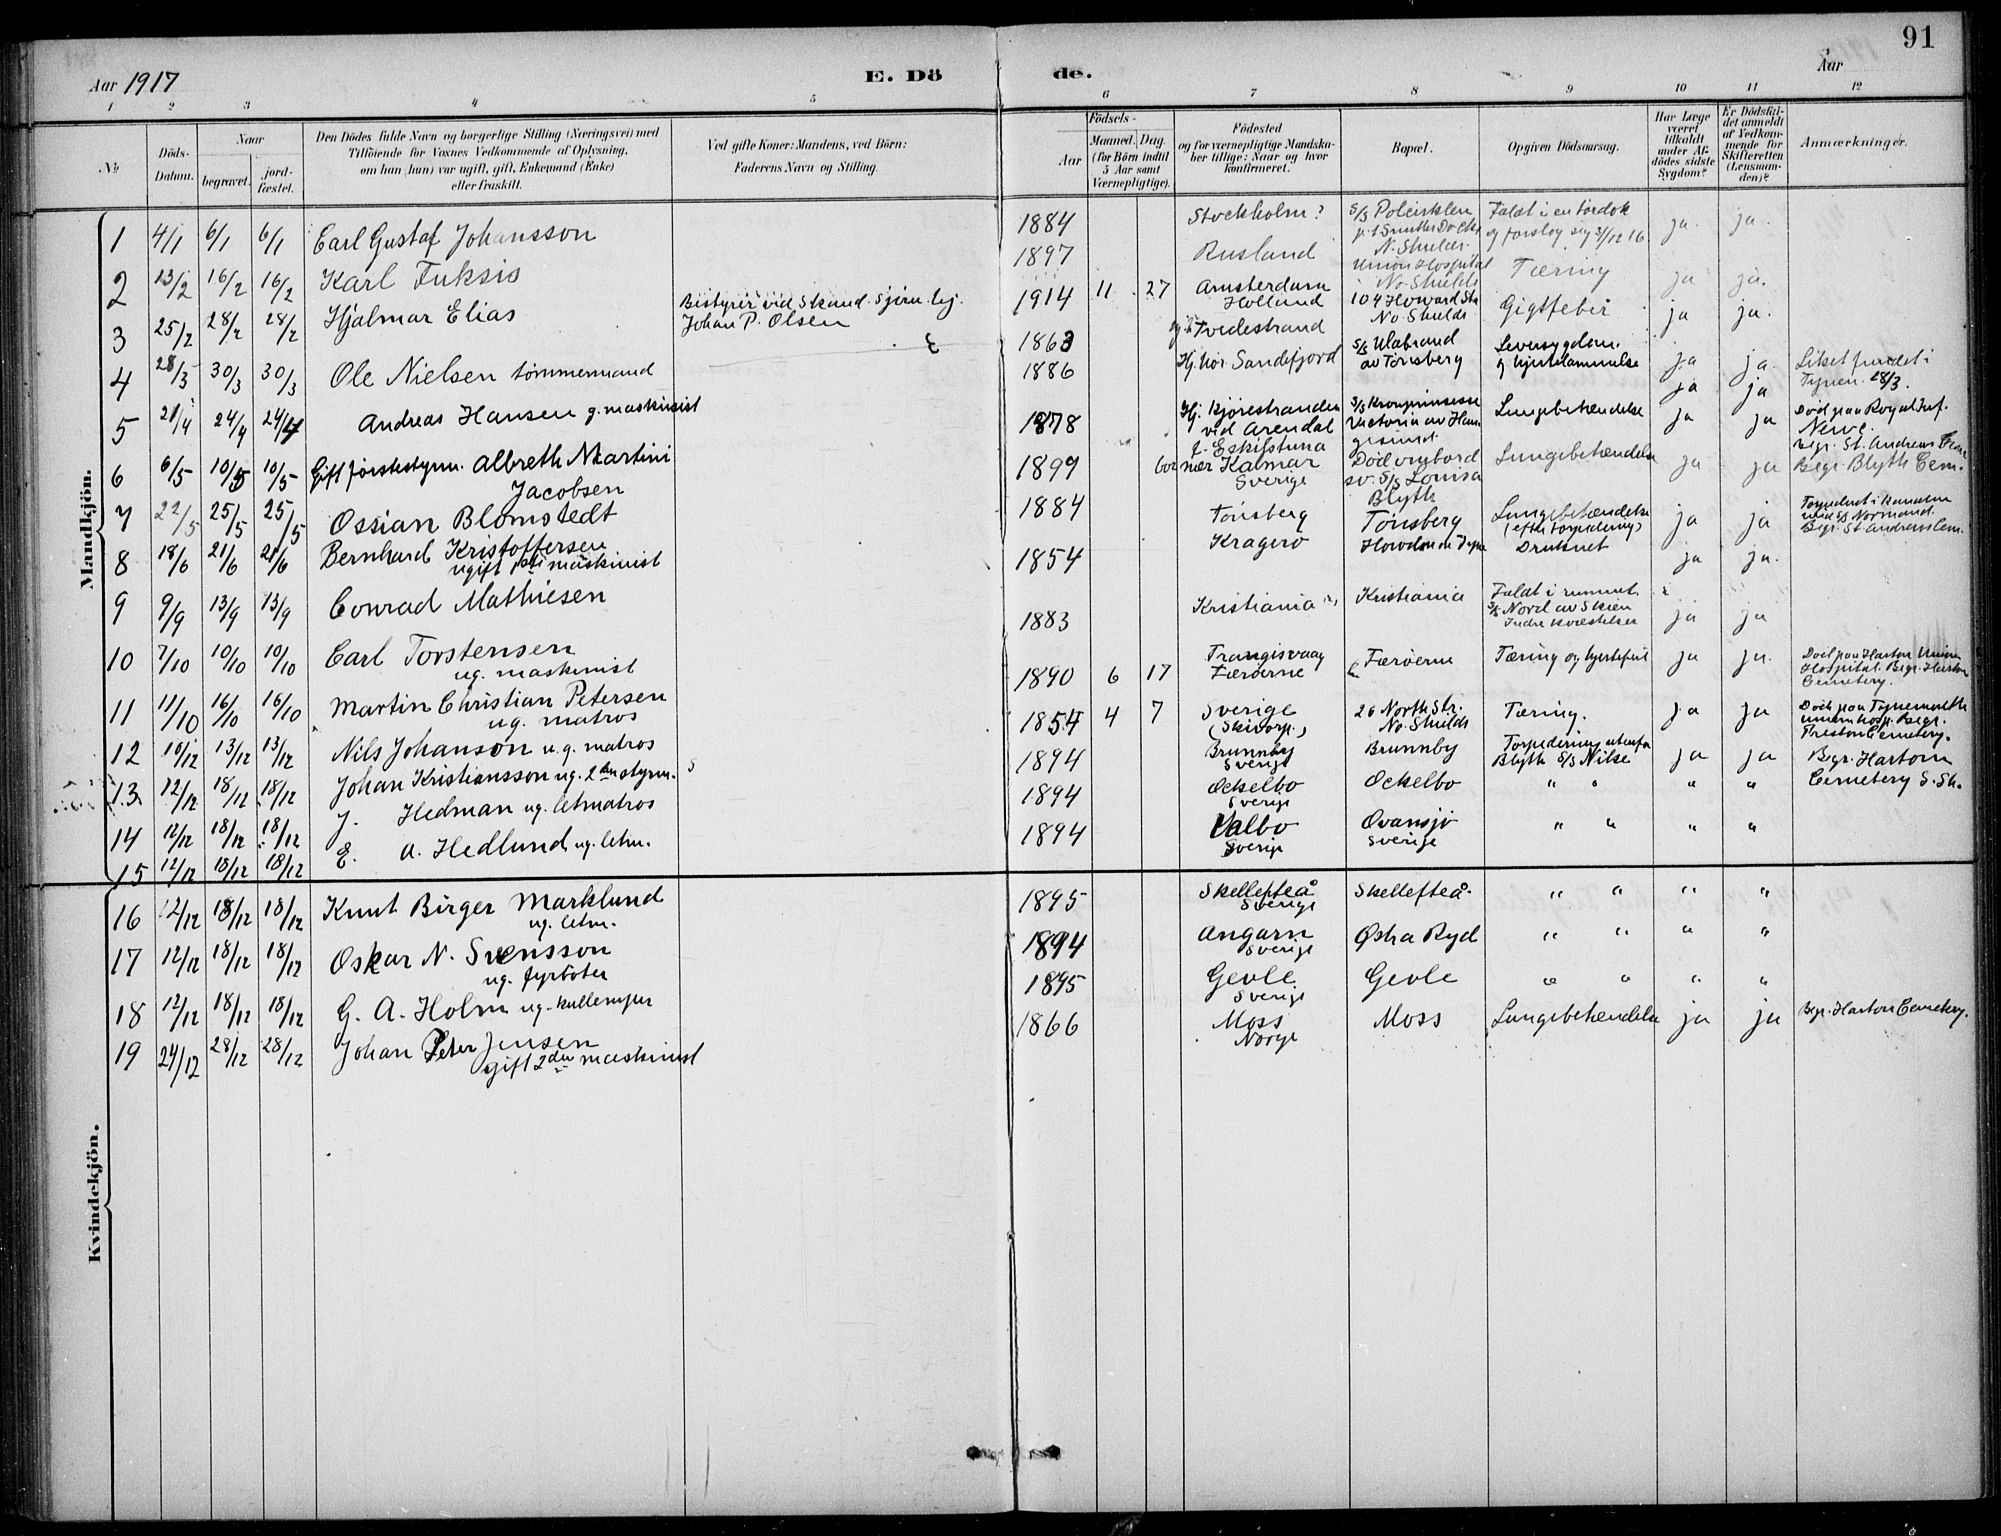 91
Aar 1917
E. Dö
de.
Aar
1 2 3 4 5 6 7 8 9 10 11 12
№
Döds-Datum.
Naar
begravet.
jord-fæstet.
Den Dödes fulde Navn og borgerlige Stilling (Næringsvei) med
Tilföiende for Voxnes Vedkommende af Oplysning,
om han (hun) var ugift, gift, Enkemand (Enke)
eller fraskilt.
Ved gifte Koner: Mandens, ved Börn:
Faderens Navn og Stilling.
Födsels-
Aar
Maaned. Dag.
(for Börn indtil
5 Aar samt
Værnepligtige).
Födested
og for værnepligtige Mandska-
ber tillige: Naar og hvor
konfirmeret.
Bopæl.
Opgiven Dödsaarsag.
Har Læge
været
tilkaldt
under Af-
dödes sidste
Sygdom?
Er Dödsfal-
det anmeldt
af Vedkom-
mende for
Skifteretten
(Lensman-
den)?
Anmærkninger.
Mandkjön.
1 4/1 6/1 6/1 Carl Gustaf Johansson
2 13/2 16/2 16/2 Karl Fuksis
3 25/2 28/2 28/2 Hjalmar Elias
Bestyrer ved Skand. Sjöm. hj.
Johan P. Olsen
4 28/3 30/3 30/3 Ole Nielsen tömmermand
5 21/4 24/4 24/4 Andreas Hansen g. maskinist
6 6/5 10/5 10/5 Gift förstestyrm. Albreth Martini
Jacobsen
7 22/5 25/5 25/5 Ossian Blomstedt
8 18/6 21/6 21/6 Bernhard Kristoffersen
ugift 1ste maskinist
9 9/9 13/9 13/9 Conrad Mathiesen
10 7/10 10/10 10/10 Carl Torstensen
ug. maskinist
11 11/10 16/10 16/10 Martin Christian Petersen
ug. matros
12 10/12 13/12 13/12 Nils Johanson u.g. matros
13 12/12 18/12 18/12 Johan Kristiansson ug. 2den styrm.
14 12/12 18/12 18/12 J. Hedman ug. letmatros
15 12/12 18/12 18/12 E. A. Hedlund ug. letm.
16 12/12 18/12 18/12 Knut Birger Marklund
ug. letm.
17 12/12 18/12 18/12 Oskar N. Svensson
ug. fyrböter
18 12/12 18/12 18/12 G. A. Holm ug. kullemper
19 24/12 28/12 28/12 Johan Peter Jensen
gift 2den maskinist
Kvindekjön.
1884 Stockholm? Faldt i en tördok
p. t Smiths Docks og forslog sig 31/12 16 ja. ja.
N. Shields.
1897 Rusland Union Hospital
No Shields Tæring ja ja.
1914 11 27 Amsterdam
Holland 104 Howard Str
No. Shields Gigtfeber ja ja.
1863 Tvedestrand S/S Ulabrand
av Tönsberg Leversygdom
og hjertelammelse ja ja.
1886 Sandefjord ja ja Liket fundet i
Tynen 28/3.
1878 Hj. Kjörestranden
ved Arendal S/S Kronprinsesse
Victoria av Hau
gesund. Lungebetændelse ja ja Död paa Royal Inf.
Newc.
Begr. St. Andrews Cem
1899 f. Eskilstuna
bor nær Kalmar
Sverige Död ombord
sv. S/S Louisa
Blyth Lungebetændelse ja ja Begr. Blyth Cem.
1884 Tönsberg Tönsberg Lungebetændelse
(efter torpedering) ja ja Torpedert i kanalen
med S/S Normand.
Begr. St. Andrews Cem.
1854 Kragerö Howdon on Tyne Druknet ja ja.
1883 Kristiania Kristiania Faldt i rummet
S/S Nord av Skien
Indre kvæstelser ja ja
1890 6 17 Trangisvaag
Færöerne Færöerne Tæring og hjertefeil ja ja. Död paa Harton Union
Hospital. Begr. Harton
Cemetery.
1854 4 7 Sverige
(Skivarp.) 26 North Str.
No. Shields Tæring. ja ja Död paa Tynemouth
union hosp. Begr.
Preston Cemetery.
1894 Brunnby
Sverige Brunnby Torpedering utenfor
Blyth S/S Nilse ja ja Begr. Harton
Cemetery S. Sh.
1894 Ockelbo
Sverige Ockelbo " " " "
1894 Valbo
Sverige Ovansjö
Sverige " " " "
1895 Skellefteå
Sverige Skellefteå. " " " "
1894 Angarn
Sverige Östra Ryd " " " "
1895 Gevle
Sverige Gevle " " " "
1866 Moss
Norge Moss Lungebetændelse ja ja Begr. Harton Cemetery.